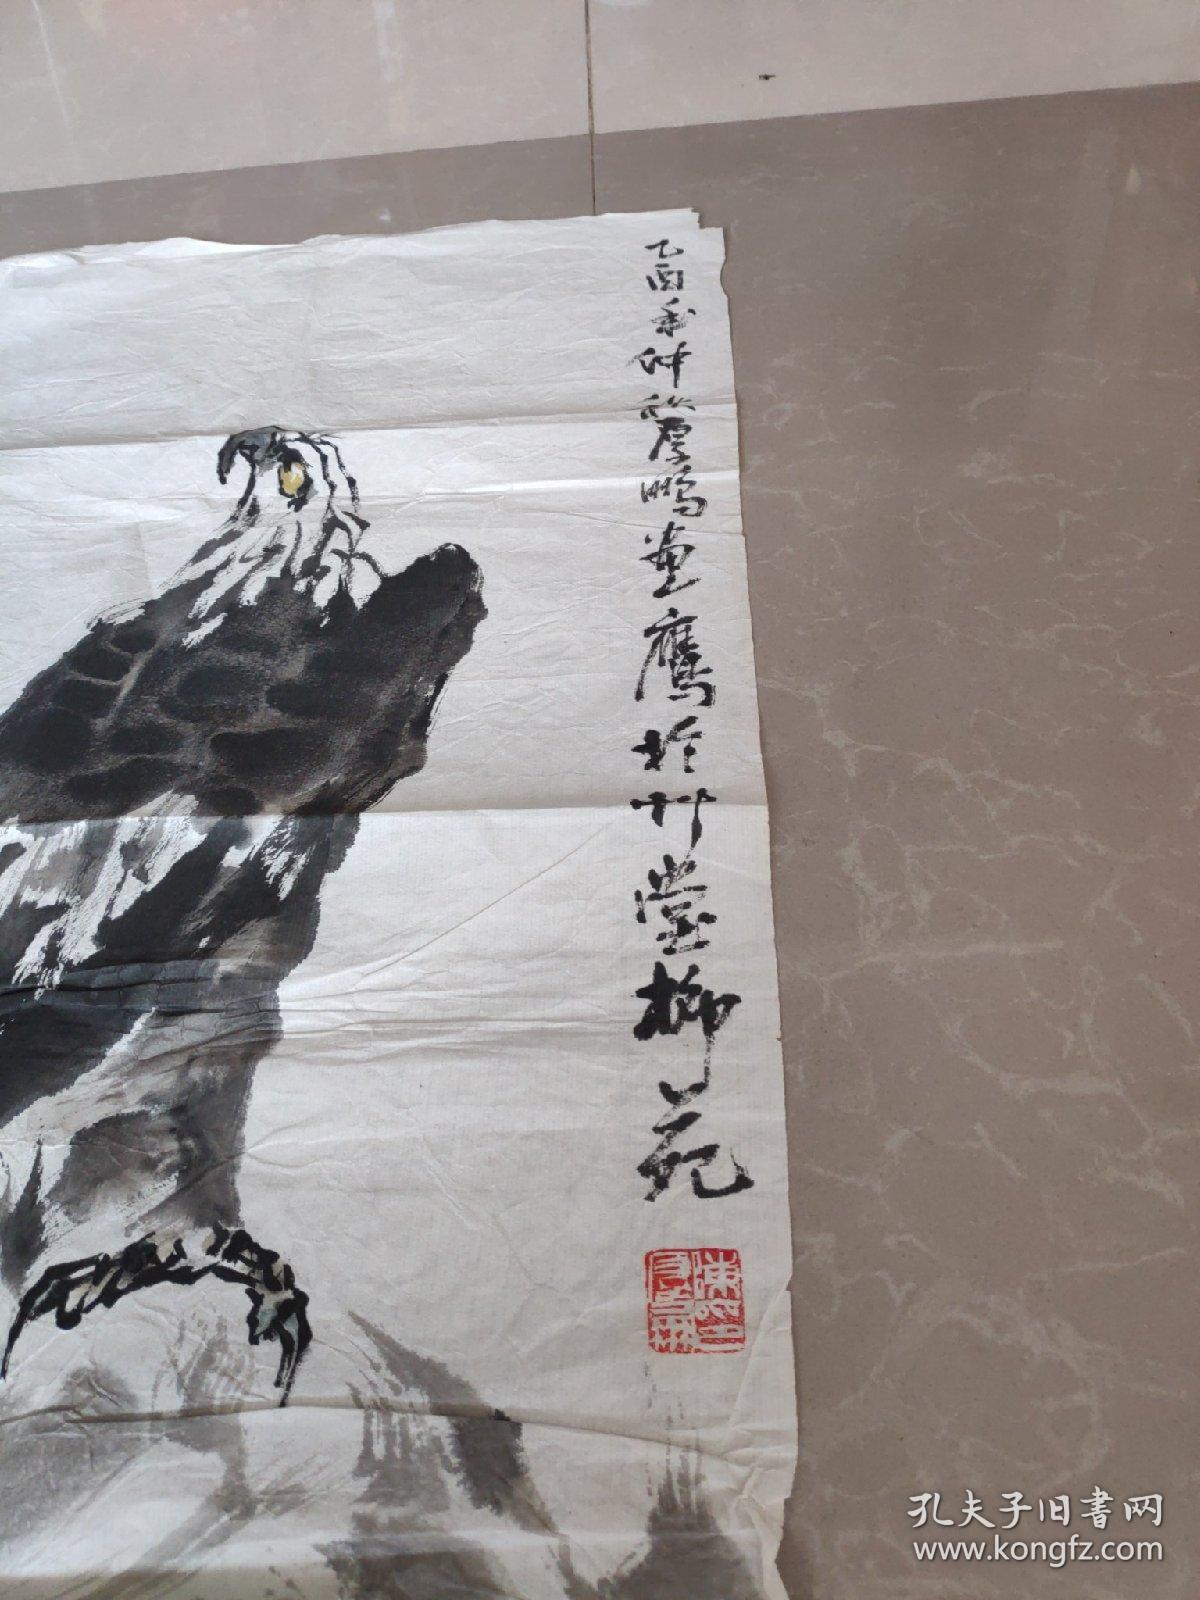 乙酉年仲秋厚鹏画鹰於竹堂柳苑
孔夫子旧書网
www.kongfz.com